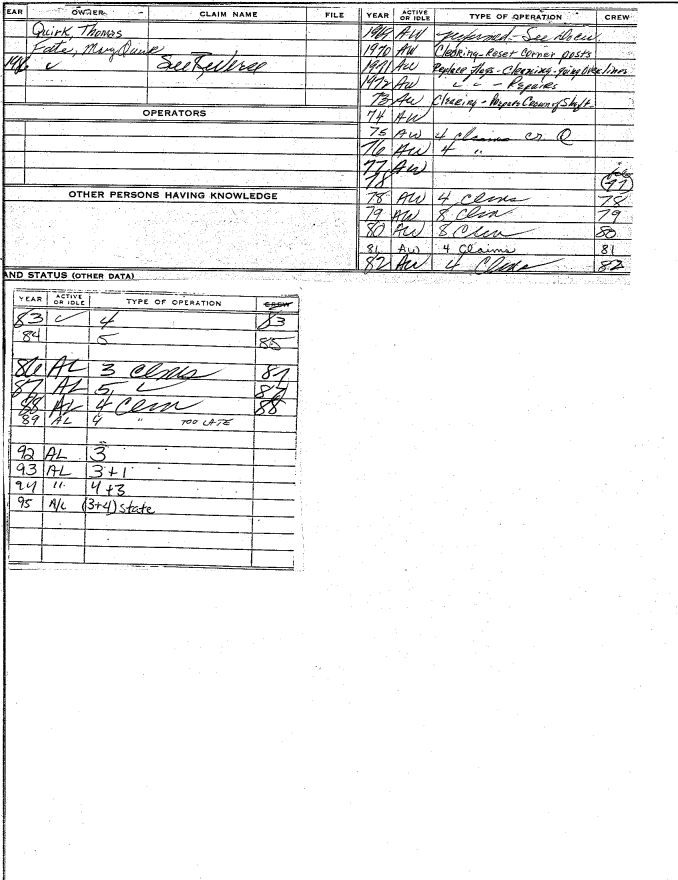 EAR OWNER CLAIM NAME FILE
Quirk, Thomas
Fate, Mary Quirk
See Reverse
OPERATORS
OTHER PERSONS HAVING KNOWLEDGE
YEAR ACTIVE OR IDLE TYPE OF OPERATION CREW
1969 AW performed - See
1970 AW Clearing - Reset Corner posts
1971 AW Replace flags - Clearing - going over lines
1972 AW " " - Repairs
73 AW Clearing - Repair Crown of Shaft.
74 AW
75 AW 4 claims
76 AW 4 "
77 AW
78 (77)
78 AW 4 clms 78
79 AW 8 clm 79
80 AW 8 clm 80
81 AW 4 Claims 81
82 AW 4 Clms 82
AND STATUS (OTHER DATA)
YEAR ACTIVE OR IDLE TYPE OF OPERATION CREW
83 ✓ 4 83
84 5 85
86 AL 3 clms 87
87 AL 5 ✓ 87
88 AL 4 Clm 88
89 AL 4 " TOO LATE
92 AL 3
93 AL 3+1
94 " 4+3
95 A/L (3+4) state